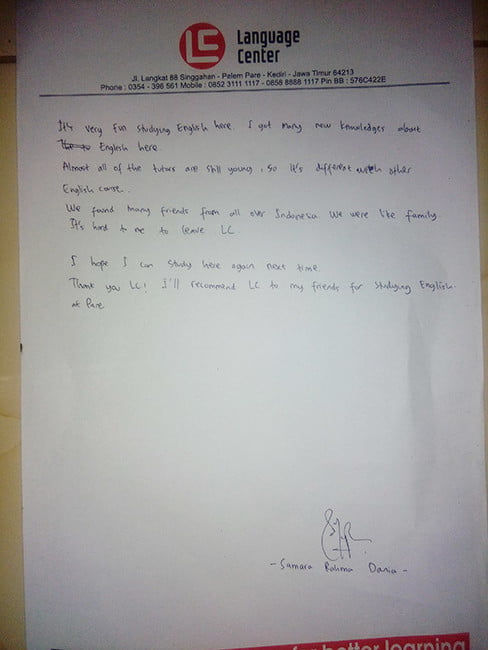 LC Language
Center
Jl. Langkat 88 Singgahan - Pelem Pare - Kediri - Jawa Timur 64213
Phone : 0354 - 396 561 Mobile : 0852 3111 1117 - 0858 8888 1117 Pin BB : 576C422E
It's very fun studying English here. I got many new knowledges about
English here.
Almost all of the tutors are still young, so it's different with other
English course.
We found many friends from all over Indonesia. We were like family.
It's hard to me to leave LC.
I hope I can study here again next time
Thank you LC! I'll recommend LC to my friends for studying English
at Pare
- Samara Rahma Dania -
for better learning